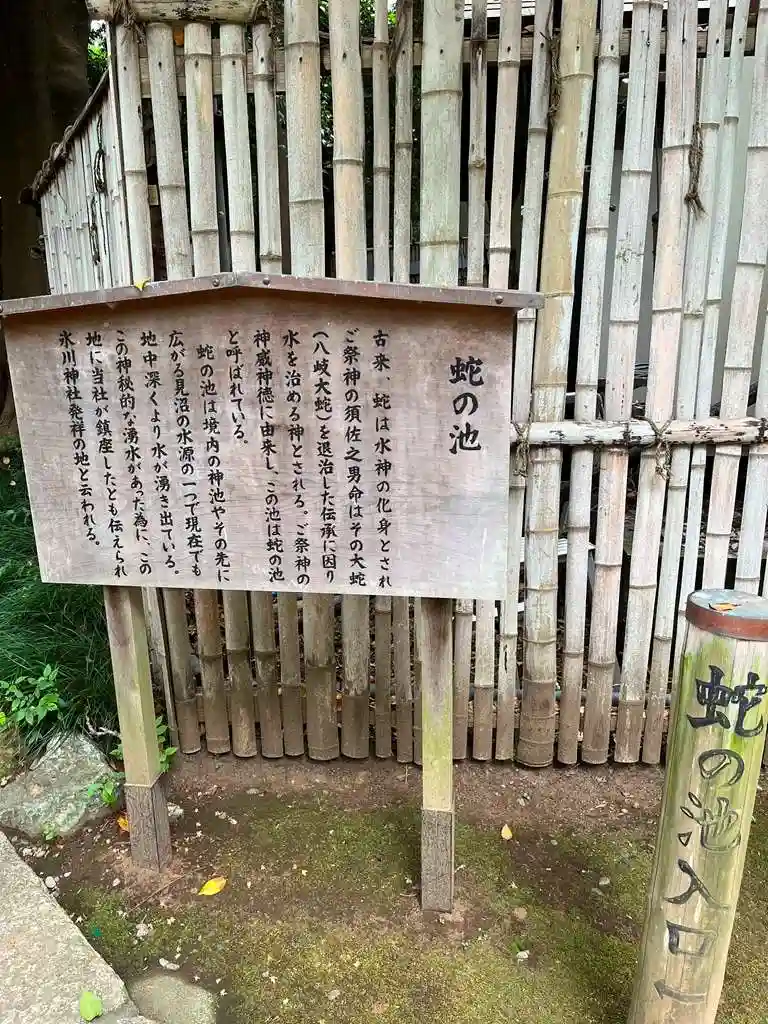 蛇の池
古来、蛇は水神の化身とされ
ご祭神の須佐之男命はその大蛇
(八岐大蛇)を退治した伝承に因り
水を治める神とされる。ご祭神の
神威神徳に由来し、この池は蛇の池
と呼ばれている。
蛇の池は境内の神池やその先に
広がる見沼の水源の一つで現在でも
地中深くより水が湧き出ている。
この神秘的な湧水があった為に、この
地に当社が鎮座したとも伝えられ
氷川神社発祥の地と云われる。
蛇の池入口